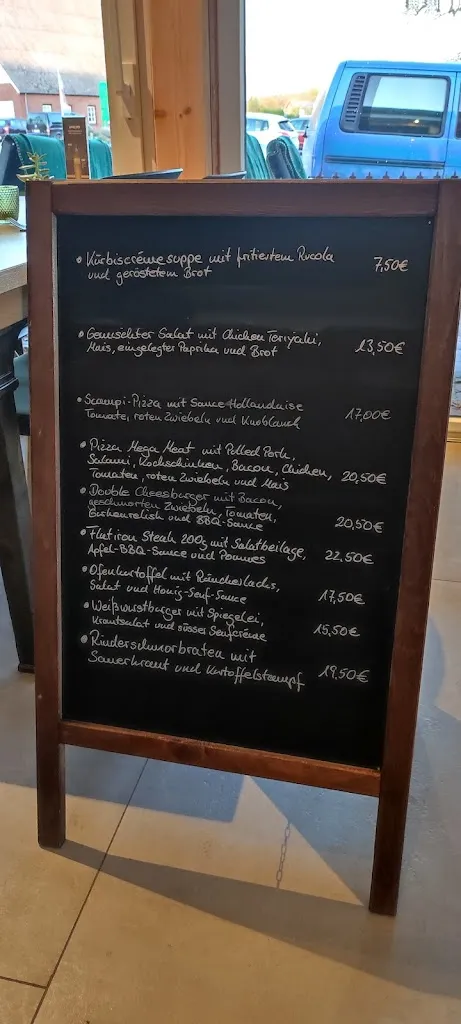 • Kürbiscrémesuppe mit fritiertem Rucola 7,50€
und geröstetem Brot
• Gemischter Salat mit Chicken Teriyaki, 13,50€
Mais, eingelegter Paprika und Brot
• Scampi-Pizza mit Sauce Hollandaise
Tomate, roten Zwiebeln und Knoblauch 17,00€
• Pizza Mega Meat mit Pulled Pork,
Salami, Kochschinken, Bacon, Chicken,
Tomaten, roten Zwiebeln und Mais 20,50€
• Double Cheesburger mit Bacon,
geschmorten Zwiebeln, Tomaten,
Gurkenrelish und BBQ-Sauce 20,50€
• Flat iron Steak 200g mit Salatbeilage,
Apfel-BBQ-Sauce und Pommes 22,50€
• Ofenkartoffel mit Räucherlachs,
Salat und Honig-Senf-Sauce 17,50€
• Weißwurstburger mit Spiegelei,
Krautsalat und süsser Senfcréme 15,50€
• Rinderschmorbraten mit
Sauerkraut und Kartoffelstampf 19,50€